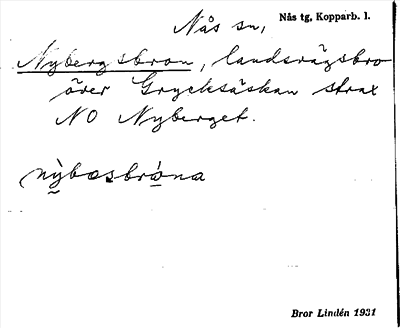 Nås sn,
Nås tg, Kopparb. l.
Nybergsbron, landsvägsbro
över Grycksåskan strax
NO Nyberget.
nỳbæsbrána
Bror Lindén 1931